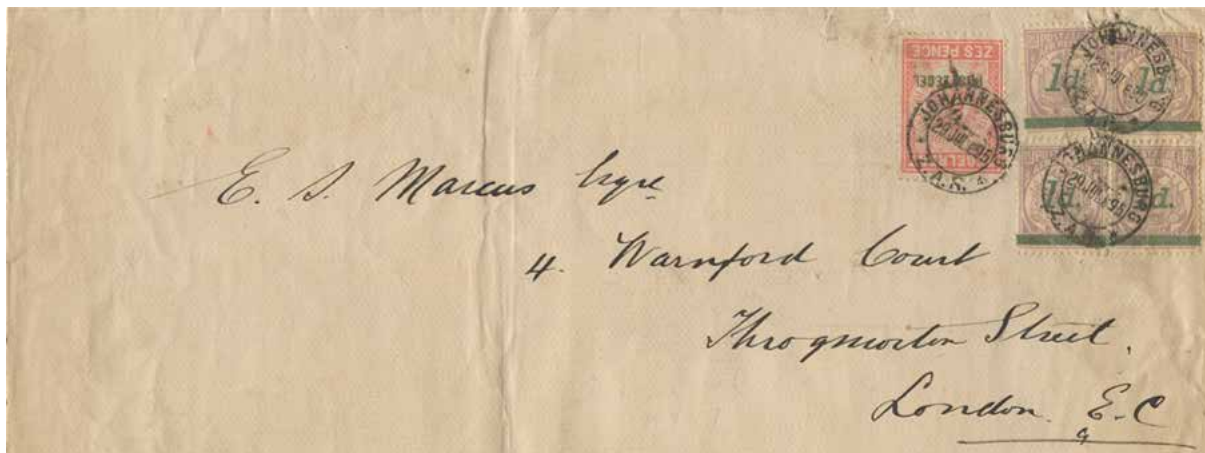 ZES PENCE
POSTZEGEL
JOHANNESBURG
Z.A.R.
JOHANNESB
Z.A.R.
1d. 1d.
JOHANNESBURG
Z.A.R.
1d. d.
E. S. Marcus Esqre
4. Warnford Court
Throgmorton Street.
London. E.C